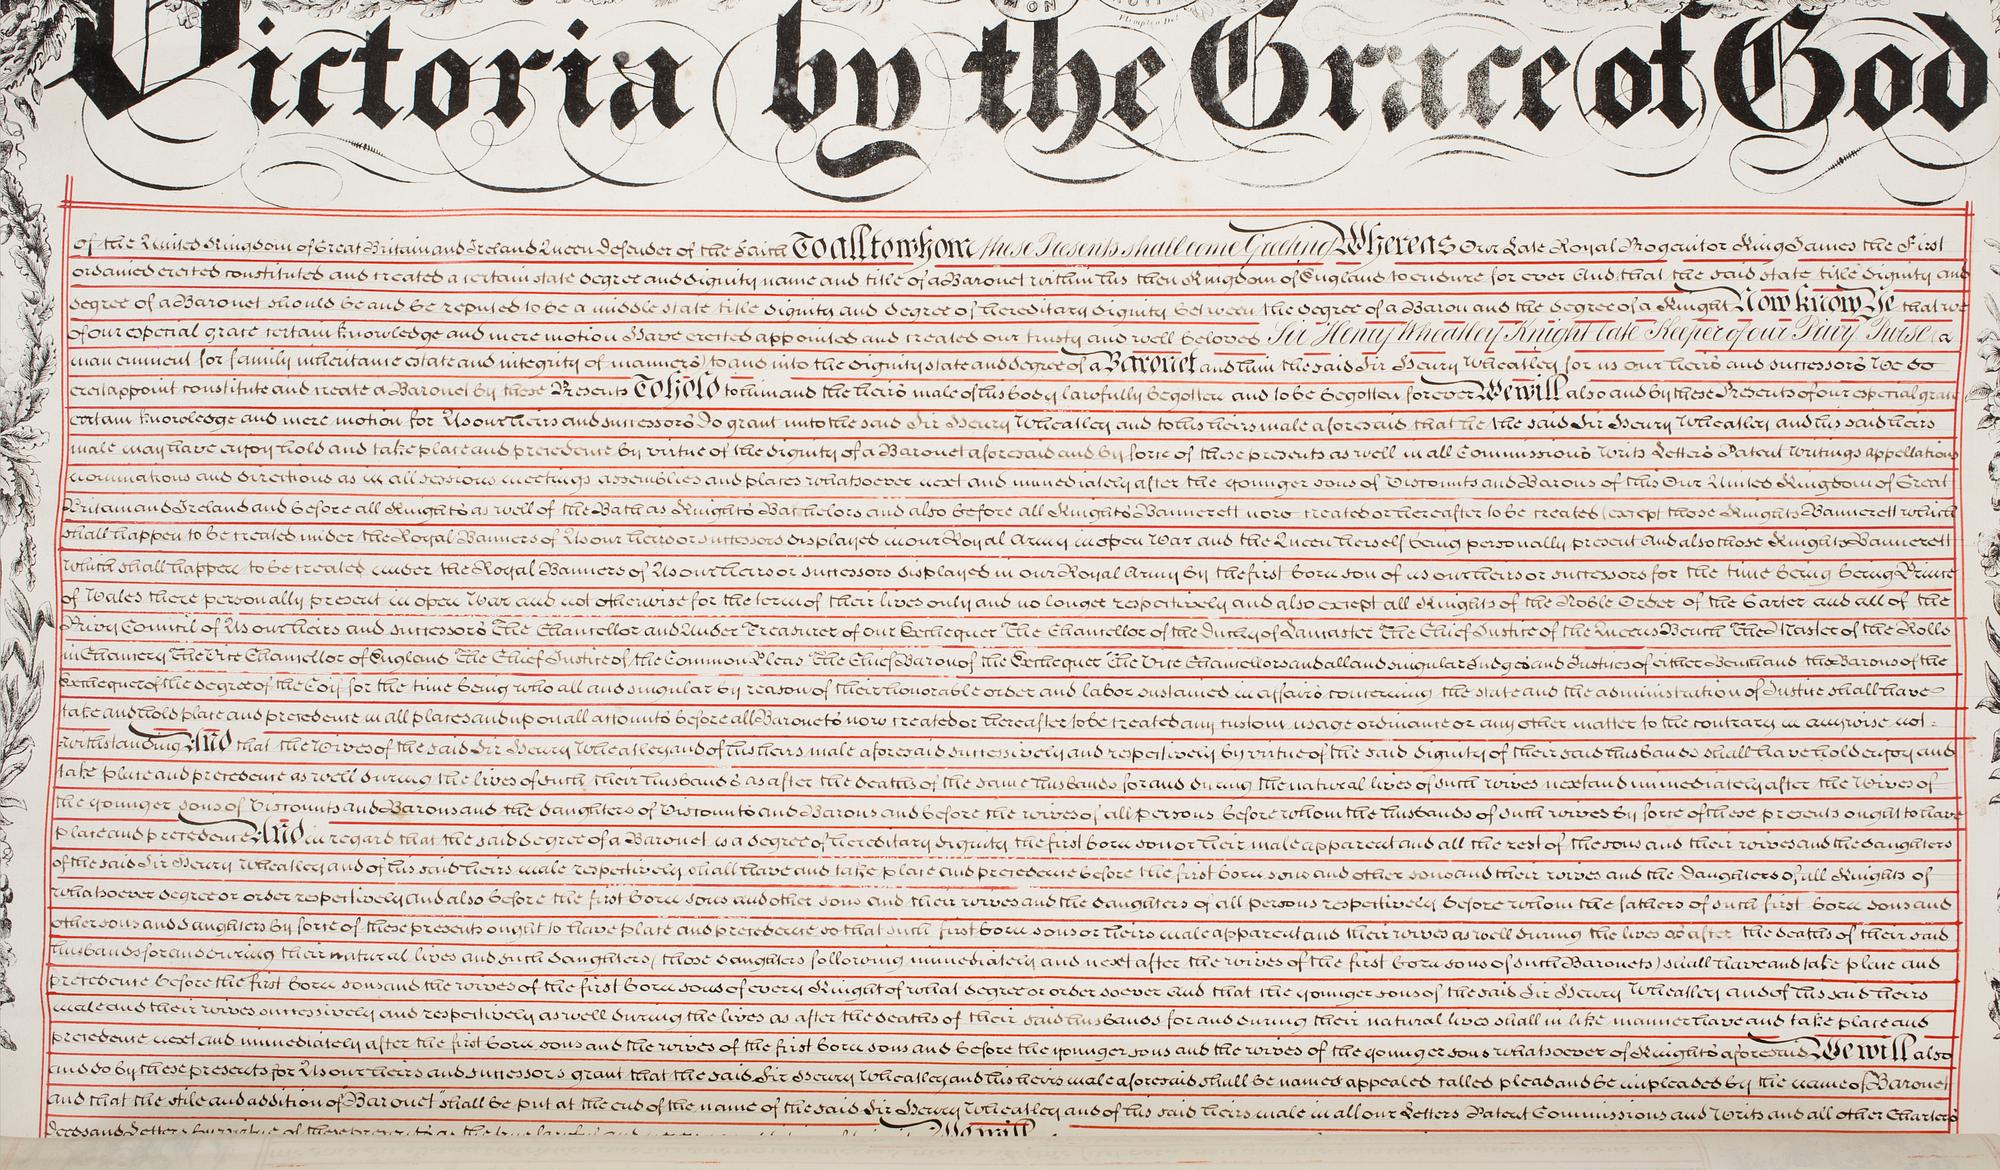 Victoria by the Grace of God
of the United Kingdom of Great Britain and Ireland Queen Defender of the Faith To all to whom these Presents shall come Greeting Whereas Our Late Royal Progenitor King James the First
ordained erected constituted and created a certain state degree and dignity name and title of a Baronet within his then Kingdom of England to endure for ever And that the said state title dignity and
degree of a Baronet should be and be reputed to be a middle state title dignity and degree of hereditary dignity between the degree of a Baron and the degree of a Knight Now Know Ye that we
of our especial grace certain knowledge and mere motion Have erected appointed and created our trusty and well beloved Sir Henry Wheatley Knight late Keeper of our Privy Purse (a
man eminent for family inheritance estate and integrity of manners) to and into the dignity state and degree of a Baronet and him the said Sir Henry Wheatley for us our heirs and successors We do
erect appoint constitute and create a Baronet by these Presents To hold to him and the heirs male of his body lawfully begotten and to be begotten for ever We will also and by these Presents of our especial grace
certain knowledge and mere motion for Us our heirs and successors Do grant unto the said Sir Henry Wheatley and to his heirs male aforesaid that he the said Sir Henry Wheatley and his said heirs
male may have enjoy hold and take place and precedence by virtue of the dignity of a Baronet aforesaid and by force of these presents as well in all Commissions Writs Letters Patent Writings appellations
nominations and directions as in all sessions meetings assemblies and places whatsoever next and immediately after the younger sons of Viscounts and Barons of this Our United Kingdom of Great
Britain and Ireland and before all Knights as well of the Bath as Knights Bachelors and also before all Knights Bannerett now created or hereafter to be created (except those Knights Bannerett which
shall happen to be created under the Royal Banners of Us our heirs or successors displayed in our Royal Army in open War and the Queen herself being personally present And also those Knights Bannerett
which shall happen to be created under the Royal Banners of Us our heirs or successors displayed in our Royal Army by the first born son of us our heirs or successors for the time being being Prince
of Wales there personally present in open War and not otherwise for the term of their lives only and no longer respectively and also except all Knights of the Noble Order of the Garter and all of the
Privy Council of Us our heirs and successors The Chancellor and Under Treasurer of our Exchequer The Chancellor of the Duchy of Lancaster The Chief Justice of the Queens Bench The Master of the Rolls
in Chancery The Vice Chancellor of England The Chief Justice of the Common Pleas The Chief Baron of the Exchequer The Vice Chancellors and all and singular Judges and Justices of either Bench and the Barons of the
Exchequer of the degree of the Coif for the time being who all and singular by reason of their honorable order and labor sustained in affairs concerning the state and the administration of Justice shall have
take and hold place and precedence in all places and upon all accounts before all Baronets now created or hereafter to be created any custom usage ordinance or any other matter to the contrary in anywise not-
withstanding And that the Wives of the said Sir Henry Wheatley and of his heirs male aforesaid successively and respectively by virtue of the said dignity of their said husbands shall have hold enjoy and
take place and precedence as well during the lives of such their husbands as after the deaths of the same husbands for and during the natural lives of such wives next and immediately after the Wives of
the younger sons of Viscounts and Barons and the daughters of Viscounts and Barons and before the wives of all persons before whom the husbands of such wives by force of these presents ought to have
place and precedence And in regard that the said degree of a Baronet is a degree of hereditary dignity the first born son or heir male apparent and all the rest of the sons and their wives and the daughters
of the said Sir Henry Wheatley and of his said heirs male respectively shall have and take place and precedence before the first born sons and other sons and their wives and the Daughters of all Knights of
whatsoever degree or order respectively and also before the first born sons and other sons and their wives and the daughters of all persons respectively before whom the fathers of such first born sons and
other sons and daughters by force of these presents ought to have place and precedence so that such first born sons or heirs male apparent and their wives as well during the lives as after the deaths of their said
husbands for and during their natural lives and such daughters (those daughters following immediately and next after the wives of the first born sons of such Baronets) shall have and take place and
precedence before the first born sons and the wives of the first born sons of every Knight of what degree or order soever And that the younger sons of the said Sir Henry Wheatley and of his said heirs
male and their wives successively and respectively as well during the lives as after the deaths of their said husbands for and during their natural lives shall in like manner have and take place and
precedence next and immediately after the first born sons and the wives of the first born sons and before the younger sons and the wives of the younger sons whatsoever of Knights aforesaid We will also
and do by these presents for Us our heirs and successors grant that the said Sir Henry Wheatley and his heirs male aforesaid shall be named appealed called plead and be impleaded by the name of Baronet
and that the stile and addition of "Baronet" shall be put at the end of the name of the said Sir Henry Wheatley and of his said heirs male in all our Letters Patent Commissions and Writs and all other Charters
We will